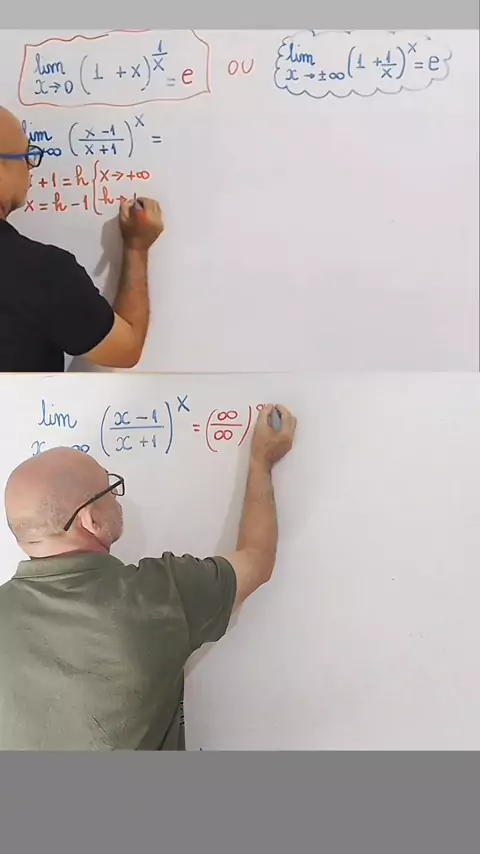 lim x→0 (1 + x)^(1/x) = e OU lim x→±∞ (1 + 1/x)^x = e
lim ∞ ((x - 1)/(x + 1))^x =
+ 1 = h { x → +∞
x = h - 1 { h →
lim ∞ ((x - 1)/(x + 1))^x = (∞/∞)